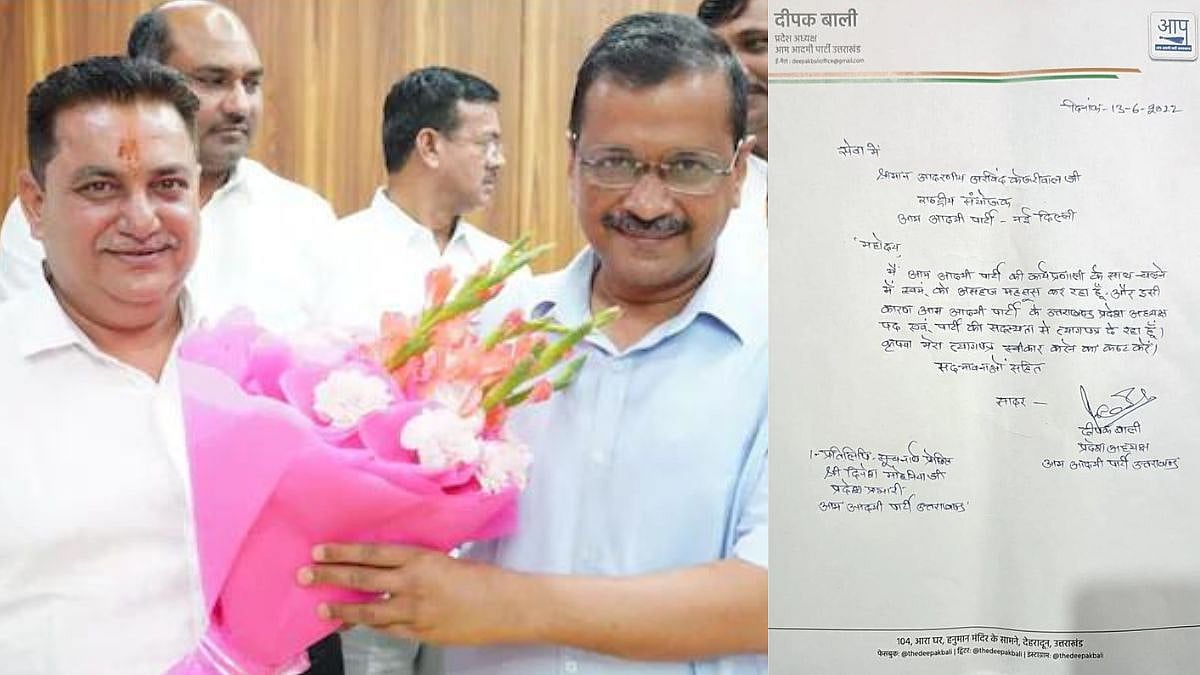 दीपक बाली
प्रदेश अध्यक्ष
आम आदमी पार्टी उत्तराखंड
ई मेल : deepakbalioffice@gmail.com
आप
दिनांक-13-6-2022
सेवा में
श्रीमान आदरणीय अरविंद केजरीवाल जी
राष्ट्रीय संयोजक
आम आदमी पार्टी - नई दिल्ली
महोदय,
मैं आम आदमी पार्टी की कार्यप्रणाली के साथ-चलने
में स्वयं को असहज महसूस कर रहा हूँ. और इसी
कारण आम आदमी पार्टी के उत्तराखण्ड प्रदेश अध्यक्ष
पद एवं पार्टी की सदस्यता से त्यागपत्र दे रहा हूँ।
कृपया मेरा त्यागपत्र स्वीकार करने का कष्ट करें।
सद्भावनाओं सहित
सादर -
दीपक बाली
प्रदेश अध्यक्ष
आम आदमी पार्टी उत्तराखण्ड
1- प्रतिलिपि- सूचनार्थ प्रेषित
श्री दिनेश मोहनिया जी
प्रदेश प्रभारी
आम आदमी पार्टी उत्तराखण्ड
104, आरा घर, हनुमान मंदिर के सामने, देहरादून, उत्तराखंड
फेसबुक: @thedeepakbali | ट्विटर: @thedeepakbali | इंस्टाग्राम: @thedeepakbali